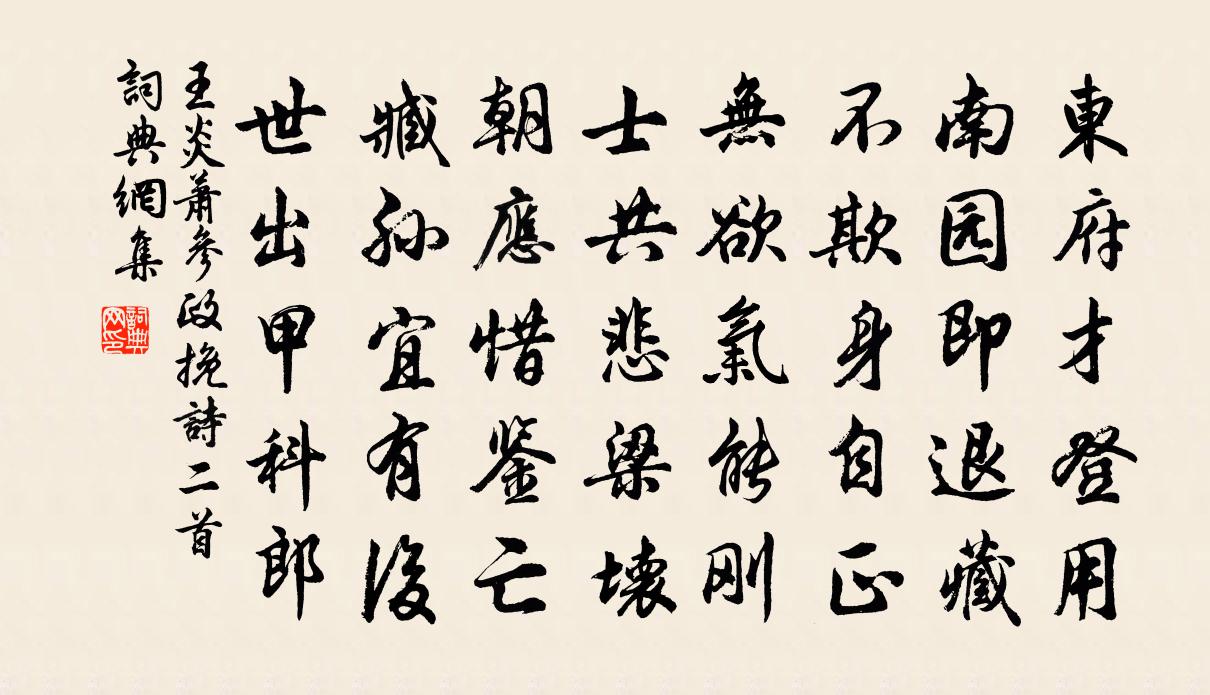 東府才登用
南园即退藏
不欺身自正
無欲氣能刚
士共悲梁壊
朝應惜鉴亡
臧孙宜有後
世出甲科郎
王炎蕭參政挽詩二首
詞典網集
詞典
网印